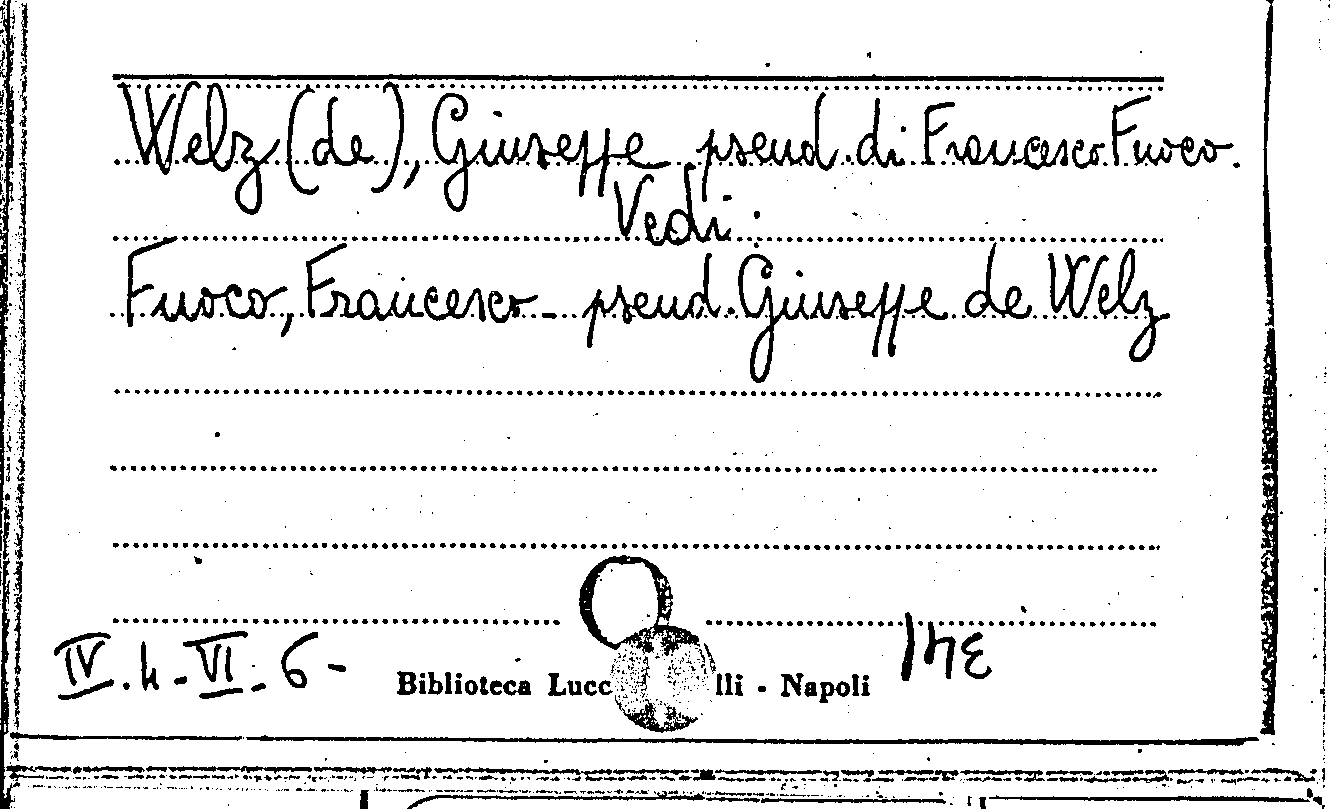 Welz (de), Giuseppe pseud. di Francesco Fuoco.
Vedi:
Fuoco, Francesco - pseud. Giuseppe de Welz
IV. 4. - VI. 6 -
Biblioteca Lucc lli - Napoli